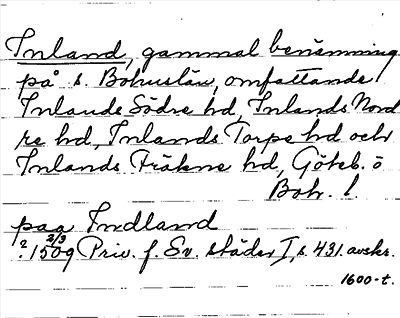 Inland, gammal benämning
på s. Bohuslän, omfattande
Inlands Södre hd, Inlands Nord
re hd, Inlands Torpe hd och
Inlands Fräkne hd, Göteb. o
Boh. l.
pag Indland
? 1509 2/3 Priv. f. Sv. städer I, s. 431. avskr.
1600-t.